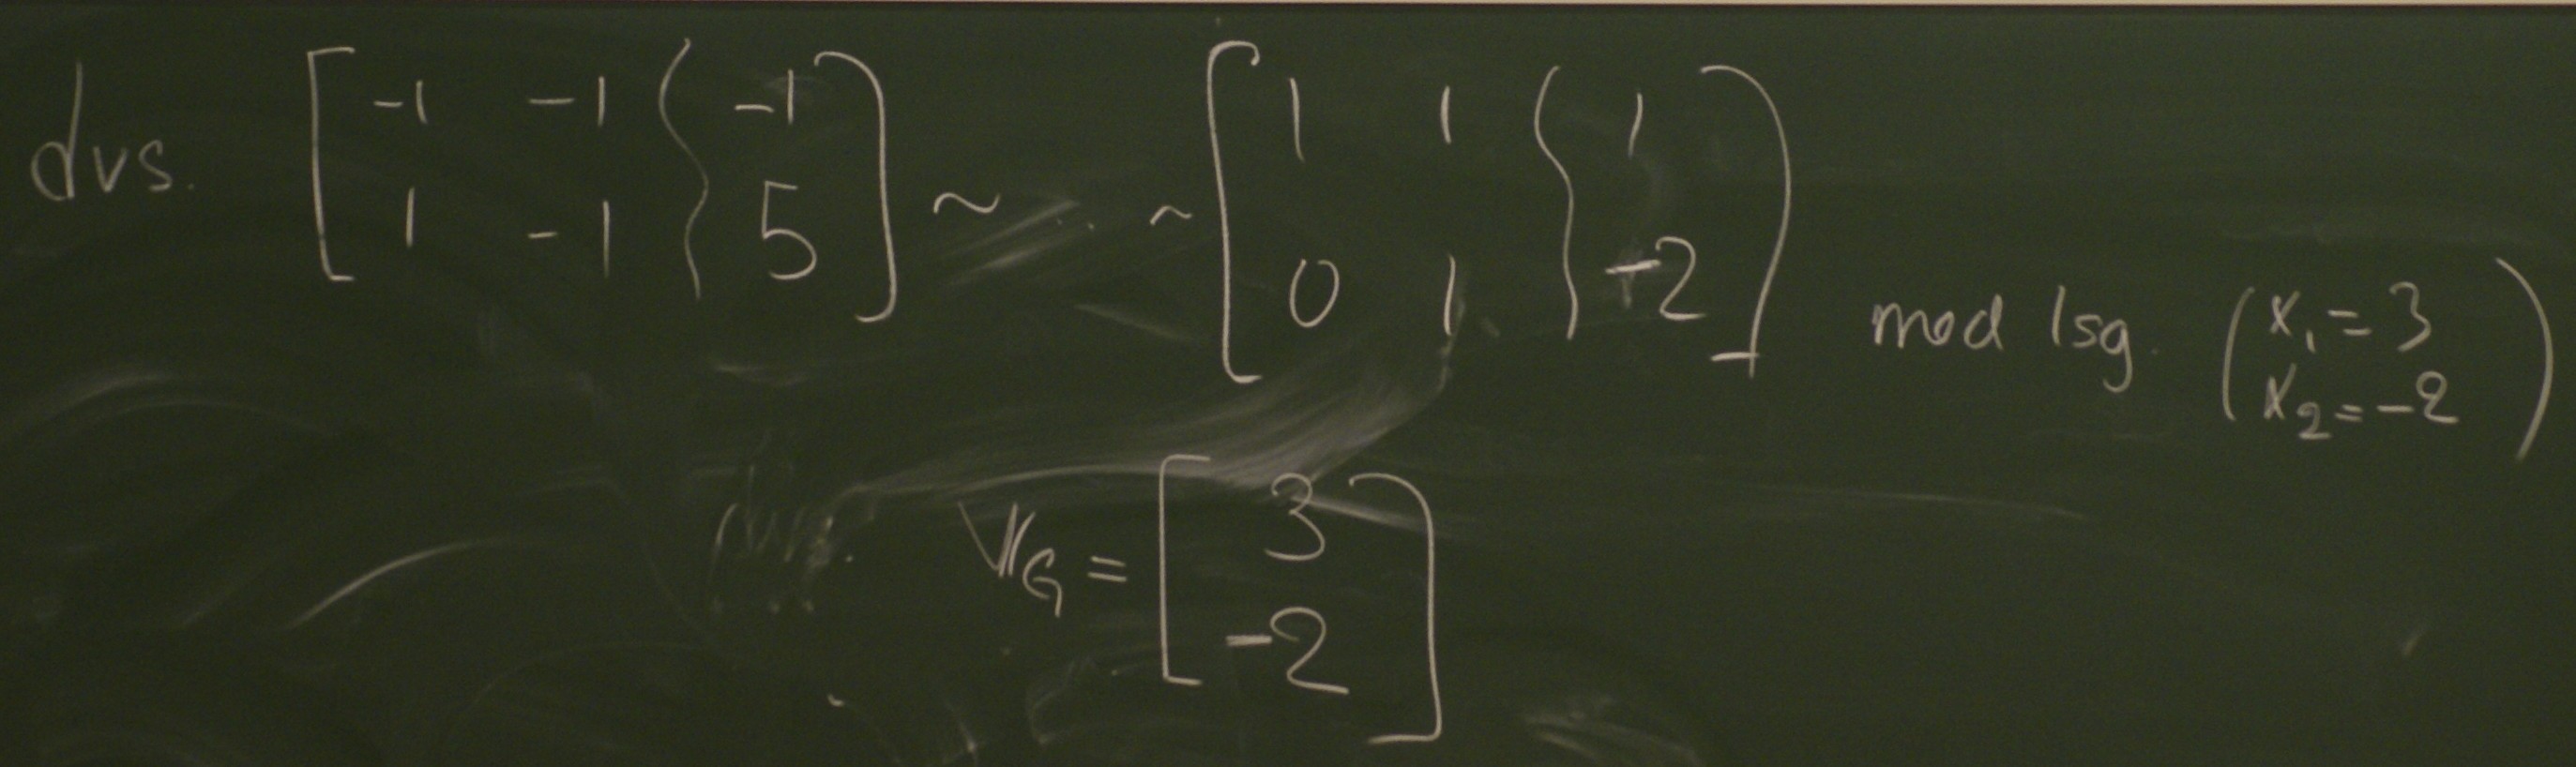 dvs. [ -1 -1 | -1 ; 1 -1 | 5 ] ~ ~ [ 1 1 | 1 ; 0 1 | -2 ] med lsg. ( x₁ = 3 ; x₂ = -2 )
V_G = [ 3 ; -2 ]